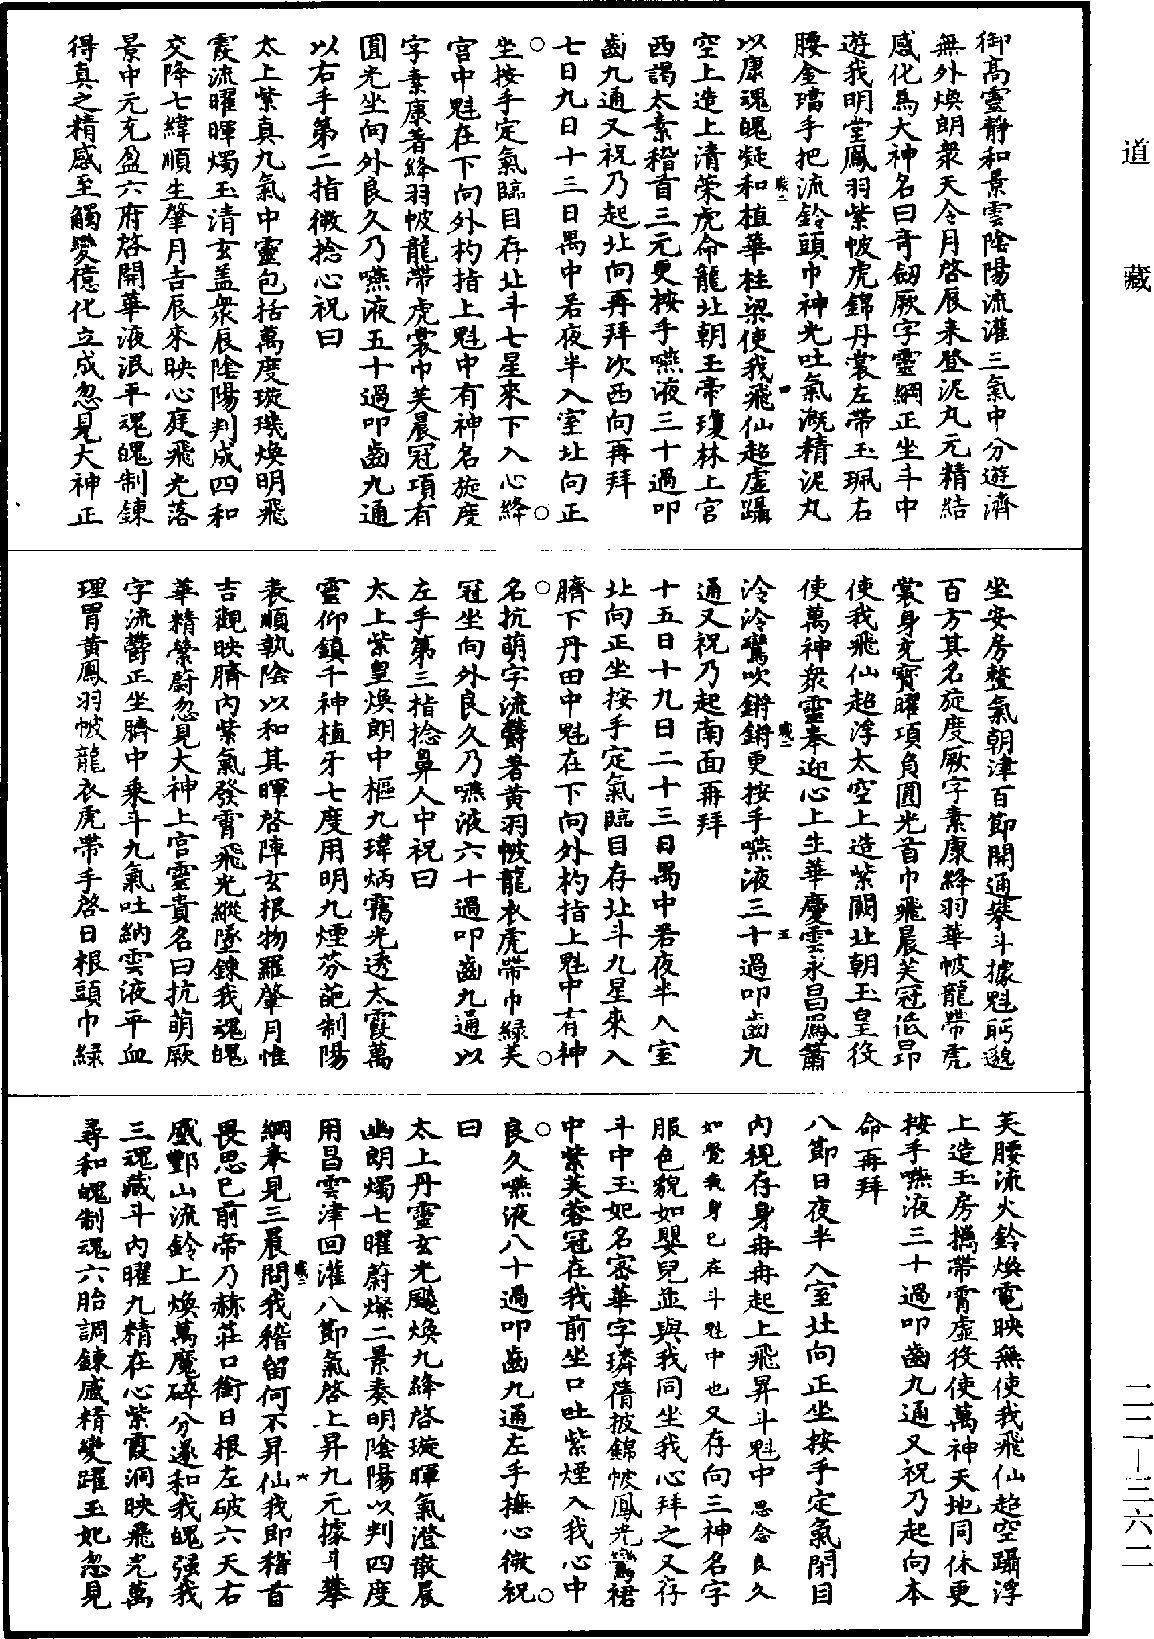 道藏
二二—三六二
御高靈靜和景雲陰陽流灌三氣中分遊濟
無外煥朗衆天令月啓辰来登泥丸元精結
感化爲大神名曰奇劒厥字靈綱正坐斗中
遊我明堂鳳羽紫帔虎錦丹裳左帶玉珮右
腰金璫手把流鈴頭巾神光吐氣溉精泥丸
以康魂魄凝和植華柱梁使我飛仙超虛躡
空上造上清榮虎命龍北朝玉帝瓊林上宮
西謁太素稽首三元更按手嚥液三十過叩
齒九通又祝乃起北向再拜次西向再拜
七日九日十三日禺中若夜半入室北向正
坐按手定氣臨目存北斗七星來下入心絳
宮中魁在下向外杓指上魁中有神名旋度
字素康著絳羽帔龍帶虎裳巾芙晨冠項有
圓光坐向外良久乃嚥液五十過叩齒九通
以右手第二指微捻心祝曰
太上紫真九氣中靈包括萬度璇璣煥明飛
霞流曜暉燭玉清玄蓋衆辰陰陽判成四和
交降七緯順生肇月吉辰來映心庭飛光落
景中元充盈六府啓開華液泯平魂魄制錬
得真之精感至觸變億化立成忽見大神正
坐安房整氣朝津百節開通攀斗據魁眄邈
百方其名旋度厥字素康絳羽華帔龍帶虎
裳身充寶曜項負圓光首巾飛晨芙冠低昂
使我飛仙超浮太空上造紫闕北朝玉皇役
使萬神衆靈奉迎心上生華慶雲永昌鳳簫
泠泠鸞吹鏘鏘更按手嚥液三十過叩齒九
通又祝乃起南面再拜
十五日十九日二十三日禺中若夜半入室
北向正坐按手定氣臨目存北斗九星來入
臍下丹田中魁在下向外杓指上魁中有神
名抗萌字流鬱著黃羽帔龍衣虎帶巾緑芙
冠坐向外良久乃嚥液六十過叩齒九通以
左手第三指捻鼻人中祝曰
太上紫皇煥朗中樞九瑋炳靄光透太霞萬
靈仰鎮千神植牙七度用明九煙芬葩制陽
表順執陰以和其暉啓陣玄根物羅肇月惟
吉觀映臍内紫氣發霄飛光縱墜錬我魂魄
華精縈蔚忽見大神上宮靈貴名曰抗萌厥
字流鬱正坐臍中乘斗九氣吐納雲液平血
理胃黃鳳羽帔龍衣虎帶手啓日根頭巾緑
芙腰流火鈴煥電映無使我飛仙超空躡浮
上造玉房攜帶霄虛役使萬神天地同休更
按手嚥液三十過叩齒九通又祝乃起向本
命再拜
八節日夜半入室北向正坐按手定氣閉目
内視存身冉冉起上飛昇斗魁中思念良久
如覺我身已在斗魁中也又存向三神名字
服色貌如嬰兒並與我同坐我心拜之又存
斗中玉妃名密華字璘蒨披錦帔鳳光鸞裙
中紫芙蓉冠在我前坐口吐紫煙入我心中
良久嚥液八十過叩齒九通左手撫心微祝
曰
太上丹靈玄光飈煥九絳啓璇暉氣澄散晨
幽朗燭七曜蔚燦二景奏明陰陽以判四度
用昌雲津回灌八節氣啓上昇九元據斗攀
綱奉見三晨問我稽留何不昇仙我即稽首
畏思已前帝乃赫莊口銜日根左破六天右
威酆山流鈴上煥萬魔碎分遂和我魄強我
三魂藏斗内曜九精在心紫霞洞映飛光萬
尋和魄制魂六胎調錬感精變躍玉妃忽見